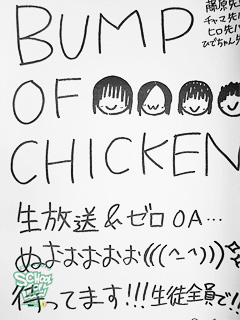 BUMP
藤原先
チャマ先
ヒロ先パ
ひでちゃん先
OF
CHICKEN
生放送&ゼロOA…
ぬおおおおお(((^-^)))
SCHOOL
待ってます!!!生徒全員で!!